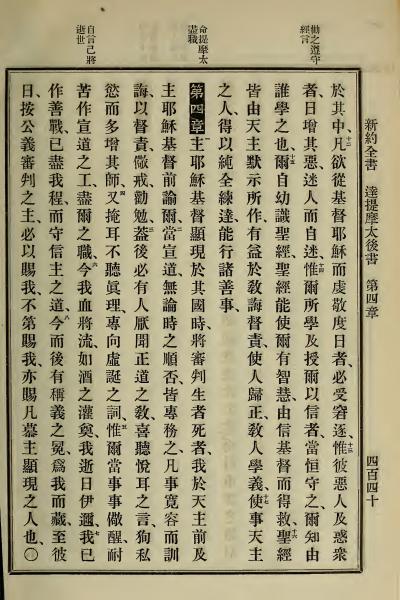 新約全書　達提摩太後書　第四章　四百四十
勸之遵守
經言
命提摩太
盡職
自言己將
逝世
於其中、十二凡欲從基督耶穌而虔敬度日者、必受窘逐、十三惟彼惡人及惑衆
者、日增其惡、迷人而自迷、十四惟爾所學及授爾以信者、當恒守之、爾知由
誰學之也、十五爾自幼識聖經、聖經能使爾有智慧、由信基督而得救、十六聖經
皆由天主默示所作、有益於敎誨督責、使人歸正、敎人學義、十七使事天主
之人、得以純全練達、能行諸善事、
第四章　主耶穌基督顯現於其國時、將審判生者死者、我於天主前及
主耶穌基督前諭爾、二當宣道、無論時之順否、皆專務之、凡事寬容而訓
誨、以督責、儆戒、勸勉、三蓋後必有人厭聞正道之敎、喜聽悅耳之言、狥私
慾而多增其師、四又掩耳不聽眞理、專向虛誕之詞、五惟爾當事事儆醒、耐
苦、作宣道之工、盡爾之職、六今我血將流、如酒之灌奠、我逝日伊邇、七我已
作善戰、已盡我程、而守信主之道、八今而後有稱義之冕、爲我而藏、至彼
日、按公義審判之主、必以賜我、不第賜我、亦賜凡慕主顯現之人也、〇